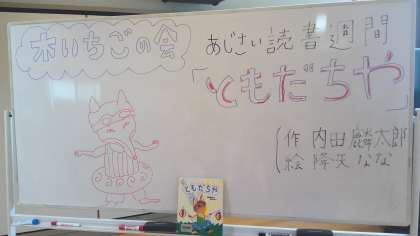 木いちごの会
あじさい読書週間
「ともだちや」
作 内田麟太郎
絵 降矢なな
ともだちや